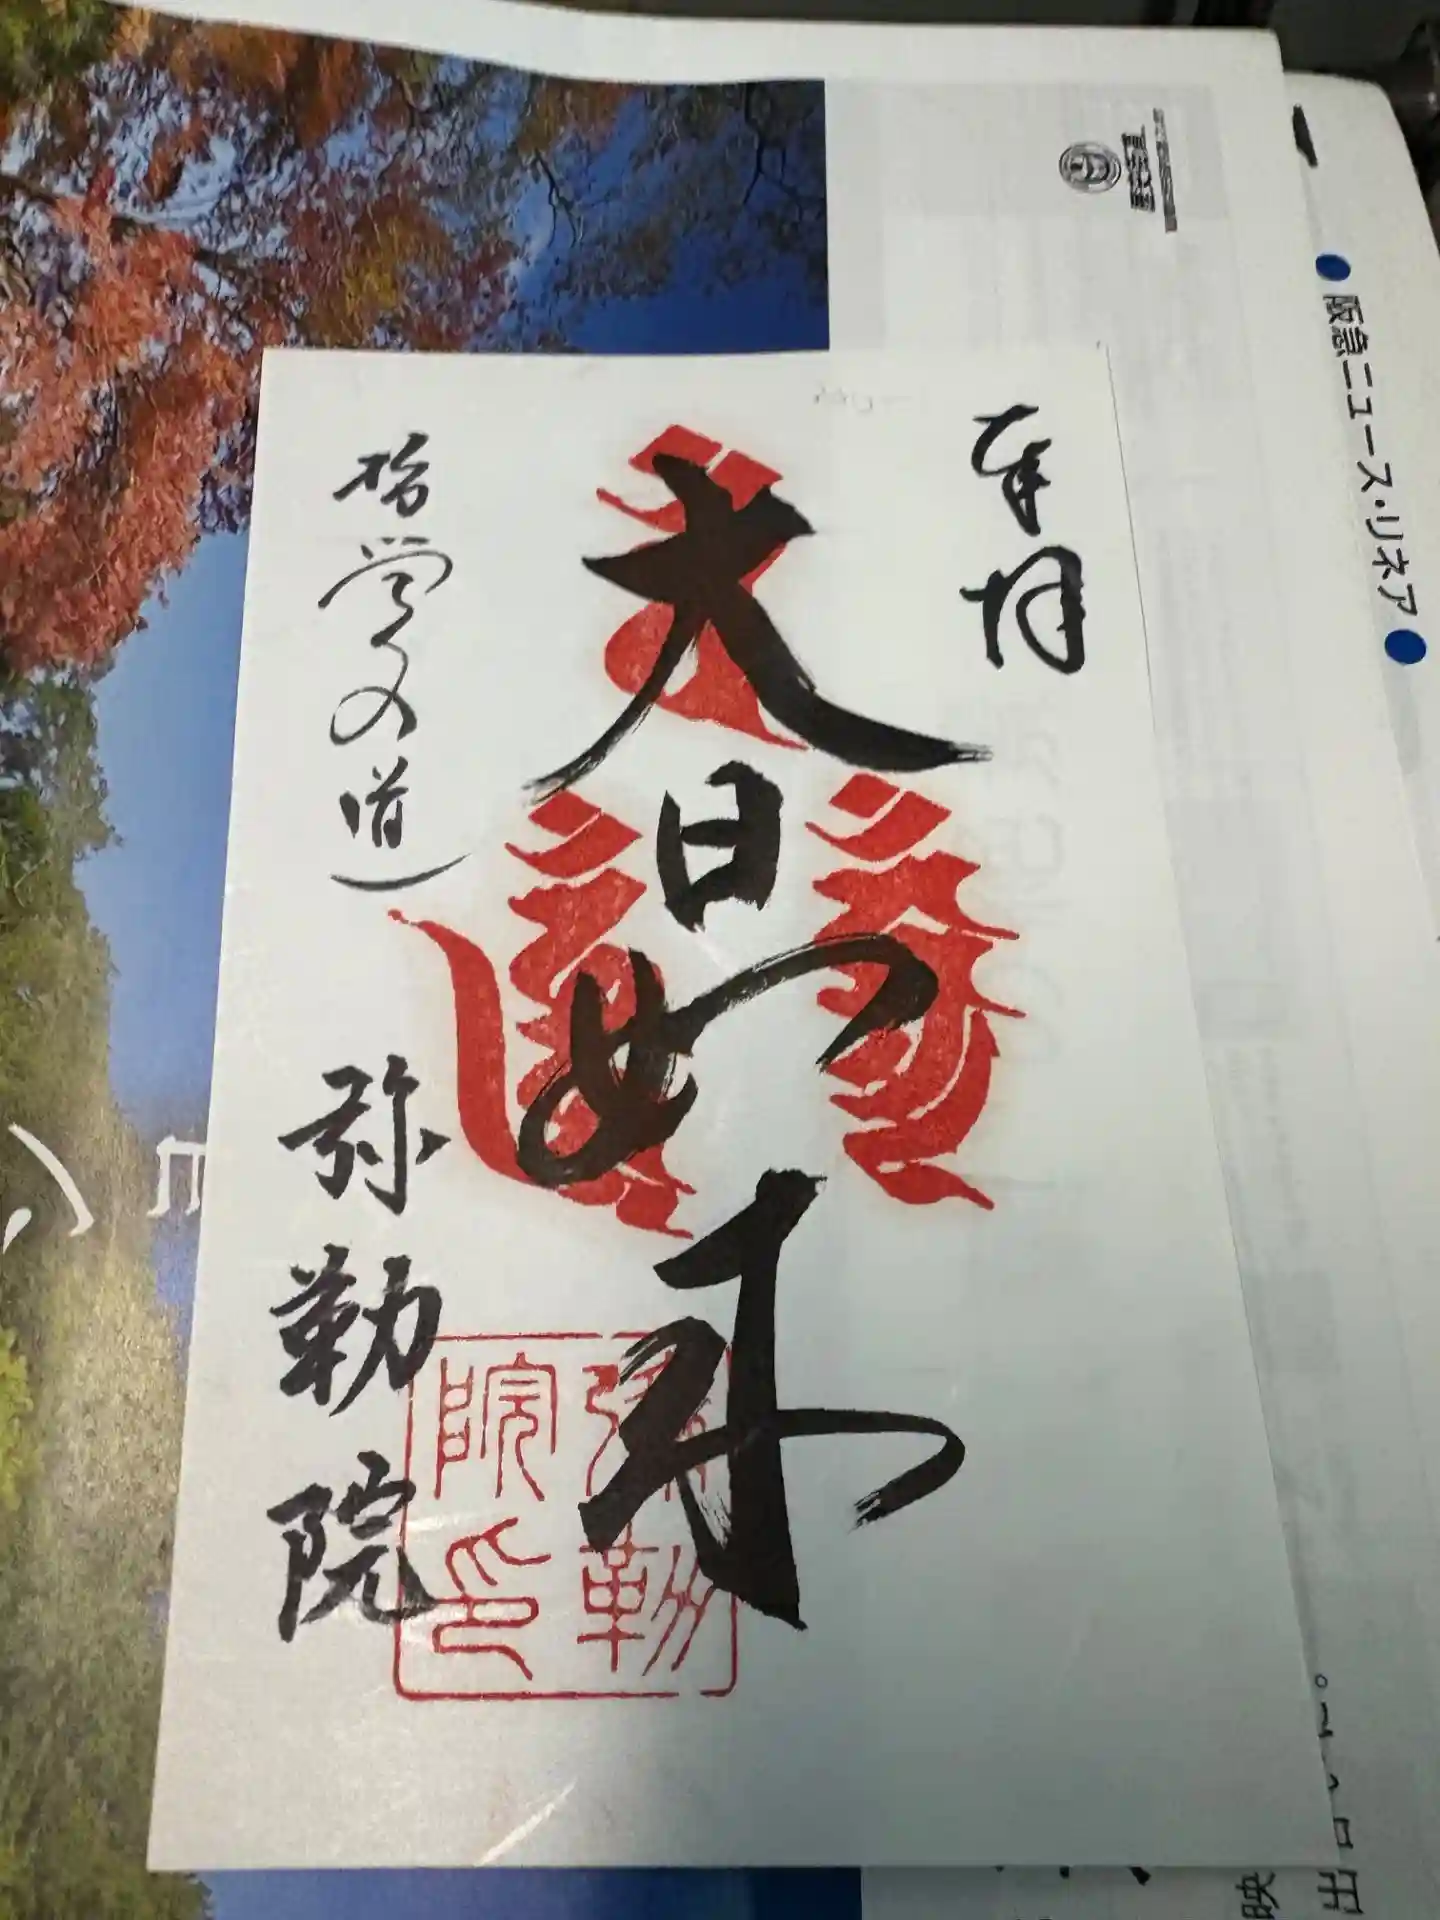 奉拝
大日如来
哲学の道
弥勒院
弥勒
院印
●阪急ニュース・リネア●
映
出